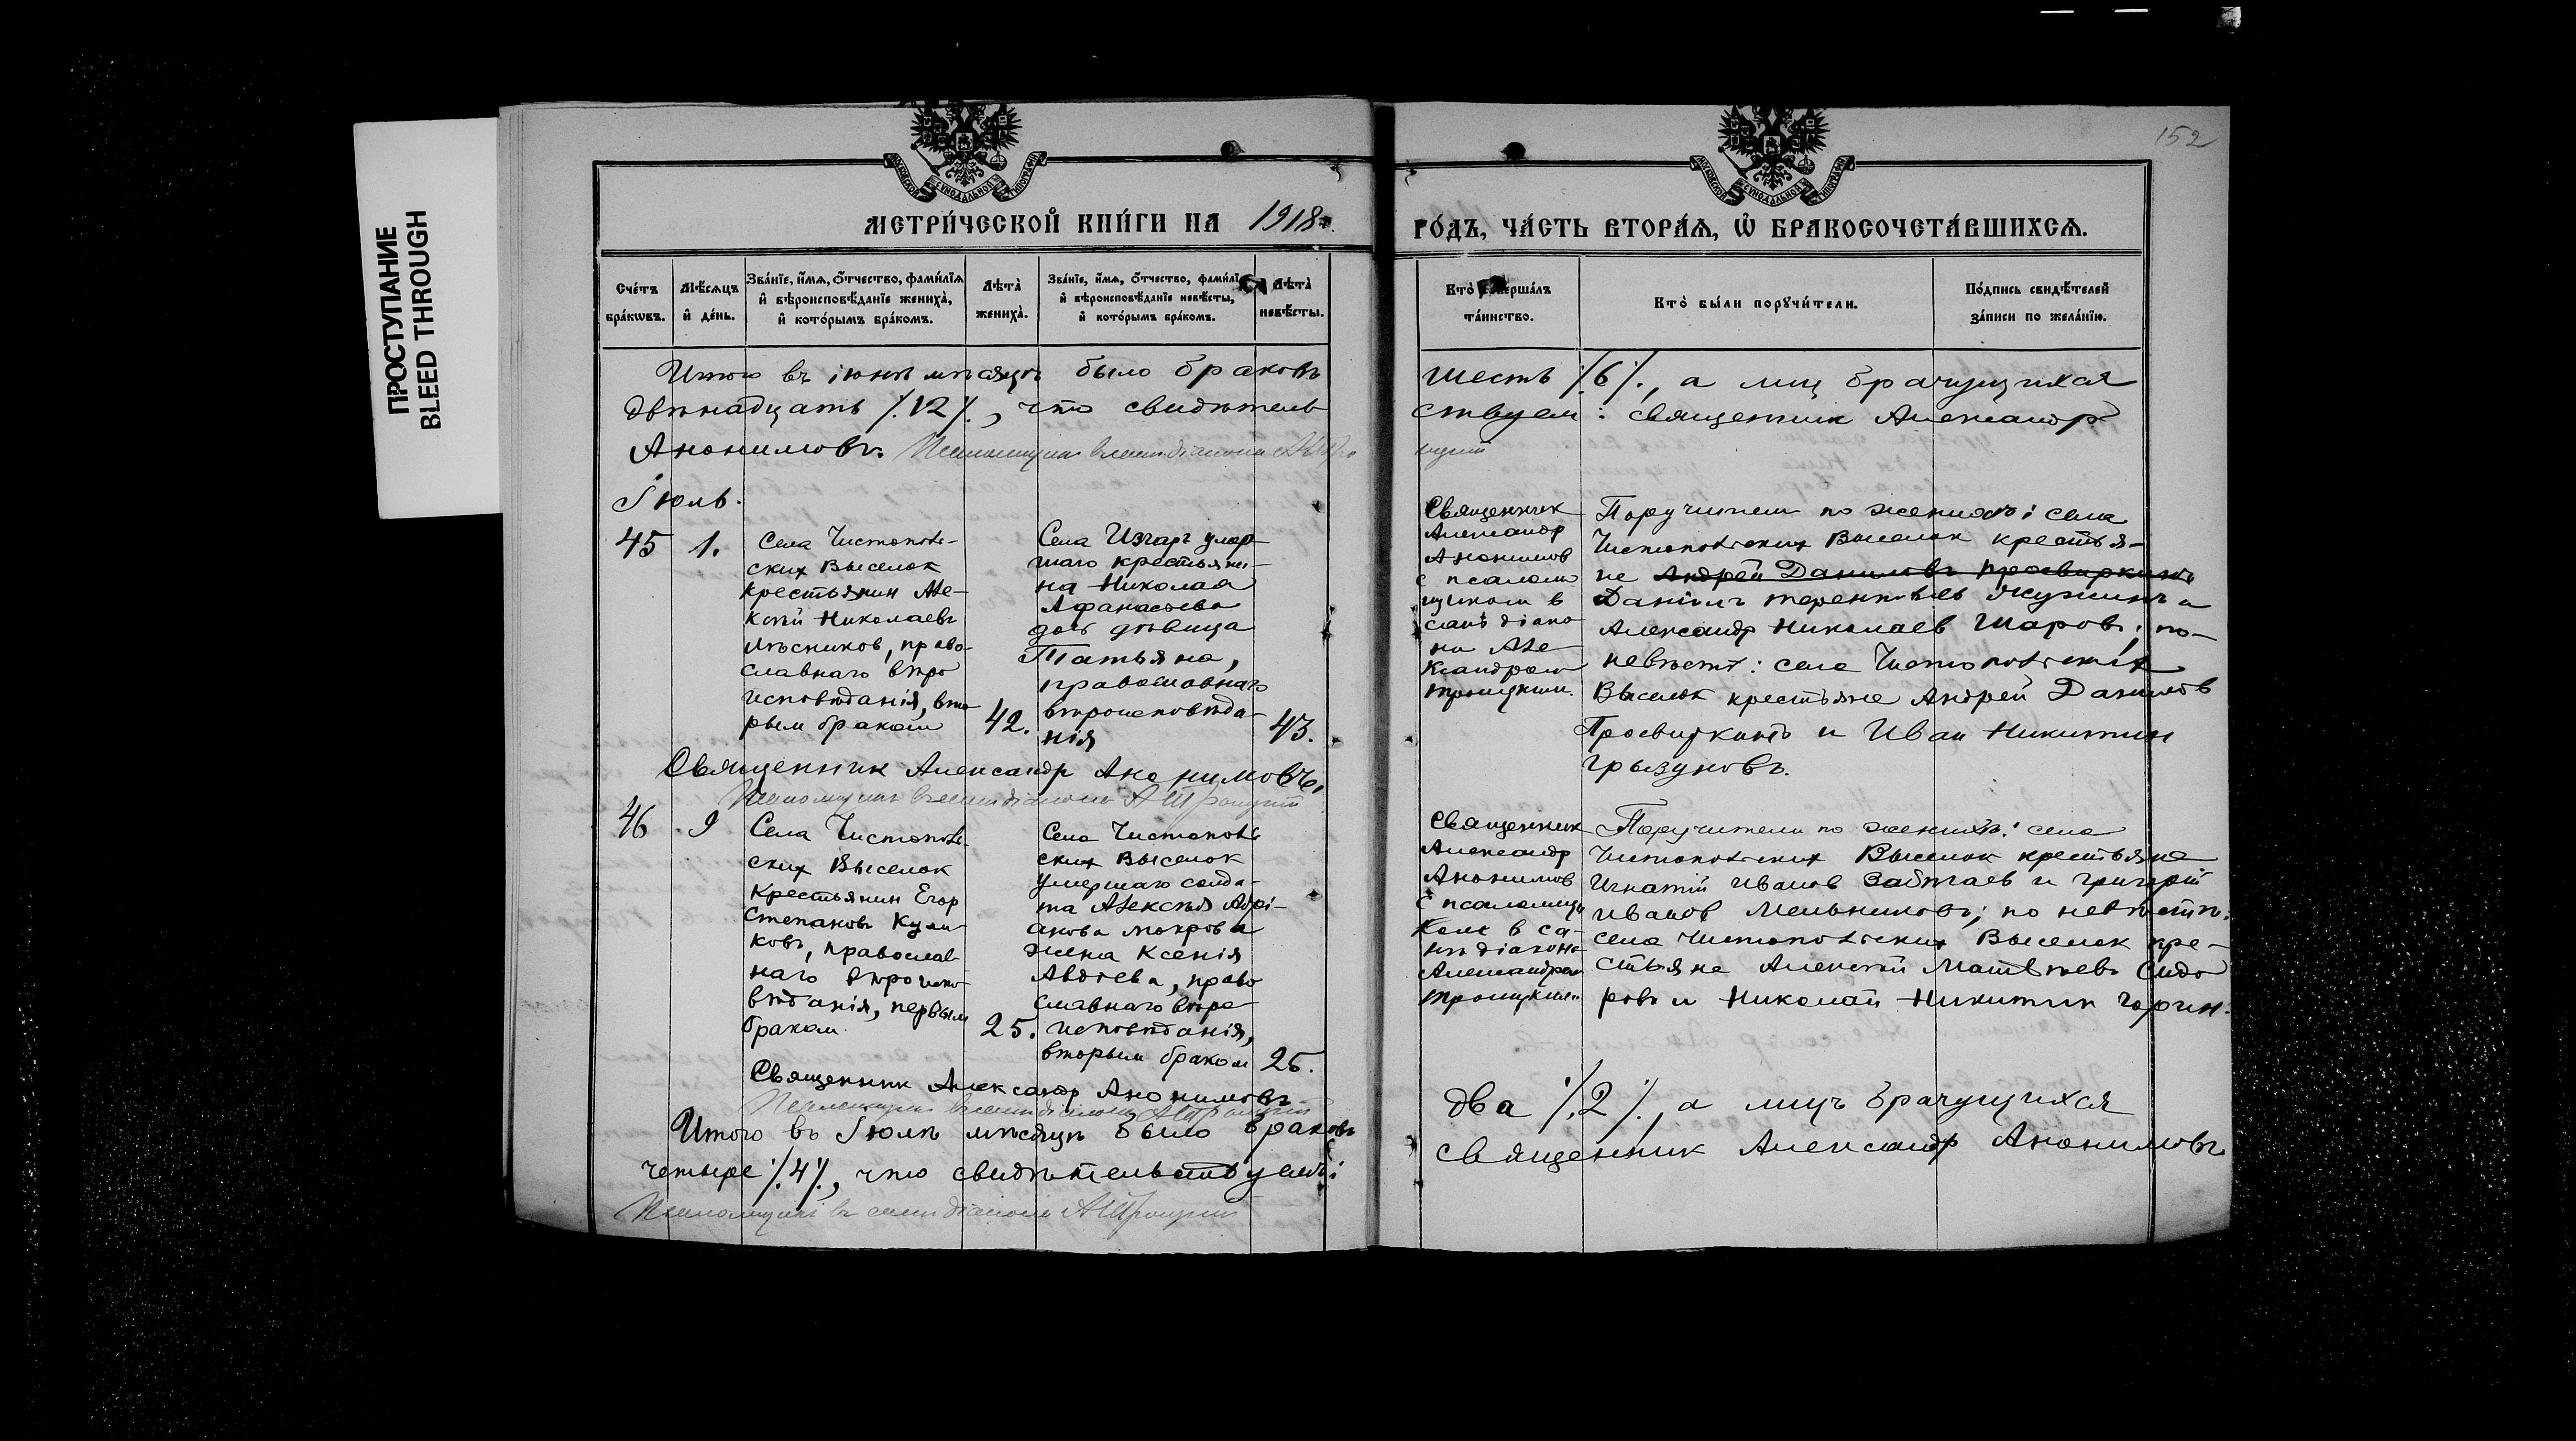 ПРОСТУПАНИЕ
BLEED THROUGH
152
МОСКОВСКОЙ СѴНОДАЛЬНОЙ ТИПОГРАФІИ
МОСКОВСКОЙ СѴНОДАЛЬНОЙ ТИПОГРАФІИ
МЕТРИ́ЧЕСКОЙ КНИ́ГИ НА 1918 г.
ГО́ДЪ, ЧА́СТЬ ВТОРА́Ѧ, Ѡ҆ БРАКОСОЧЕТА́ВШИХСѦ.
Сче́тъ
бра́кѡвъ.
Мѣ́сѧцъ
и҆ де́нь.
Зва́нїе, и҆́мѧ, ѻ҆́тчество, фами́лїѧ
и҆ вѣроисповѣ́данїе жениха̀,
и҆ кото́рымъ бра́комъ.
Лѣ́та̀
жениха̀.
Зва́нїе, и҆́мѧ, ѻ҆́тчество, фами́лїѧ
и҆ вѣроисповѣ́данїе невѣ́сты,
и҆ кото́рымъ бра́комъ.
Лѣ́та̀
невѣ́сты.
Кто̀ соверша́лъ
та́инство.
Кто̀ бы́ли порꙋчи́тели.
По́дпись свидѣ́телей
за́писи по жела́нїю.
Итого въ іюнѣ мѣсяцѣ было браковъ
шесть /.6/., а лиц брачущихся
двѣнадцать /.12/., что свидѣтель
ствуем: священник Александр
Анонимовъ. Псаломщик в санѣ діакона А Тро
ицкій
Іюль.
45
1.
Села Чистополь-
ских Выселок
крестьянин Але-
ксѣй Николаевъ
Мѣсников, право-
славнаго вѣро
исповѣданія, вто-
рым браком
42.
Села Изгаръ умер
шаго крестьяни-
на Николая
Афанасьева
дочь дѣвица
Татьяна,
православнаго
вѣроисповѣда-
нія
43.
Священник
Александр
Анонимов
с псалом
щиком в
санѣ діако
на Але-
ксандром
Троицким.
Поручители по женихѣ: села
Чистопольских Выселок крестья-
не Андрей Данилов Просвиркинъ
Даніил Терентьев и
Александр Николаев Шаров; по-
невѣстѣ: села Чистопольских
Выселок крестьяне Андрей Данилов
Просвиркинъ и Иван Никитин
Грызуновъ.
Священник Александр Анонимовъ.
Псаломщик в санѣ діакона А Троицкій
46
9
Села Чистополь-
ских Выселок
крестьянин Егор
Степанов Кули-
ковъ, православ-
наго вѣроиспо-
вѣданія, первым
браком.
25.
Села Чистополь
ских Выселок
умершаго солда-
та Алексѣя Адрі-
анова Мокрова
жена Ксенія
Авдеева, право
славнаго вѣро-
исповѣданія,
вторым браком
25.
Священник
Александр
Анонимов
с псаломщи
ком в са-
нѣ діакона
Александром
Троицким.
Поручители по женихѣ: села
Чистопольских Выселок крестьяне
Игнатій Иванов и Григорій
Иванов Мельников; по невѣстѣ:
села Чистопольских Выселок кре-
стьяне Алексѣй Матвѣев Сидо
ров и Николай Никитин Горин.
Священник Александр Анонимовъ
Псаломщик в санѣ діакона А Троицкій
Итого въ Іюлѣ мѣсяцѣ было браковъ
два /.2/., а лицъ брачущихся
четыре /.4/., что свидѣтельствуемъ:
священник Александр Анонимовъ.
Псаломщик в санѣ діакона А Троицкій